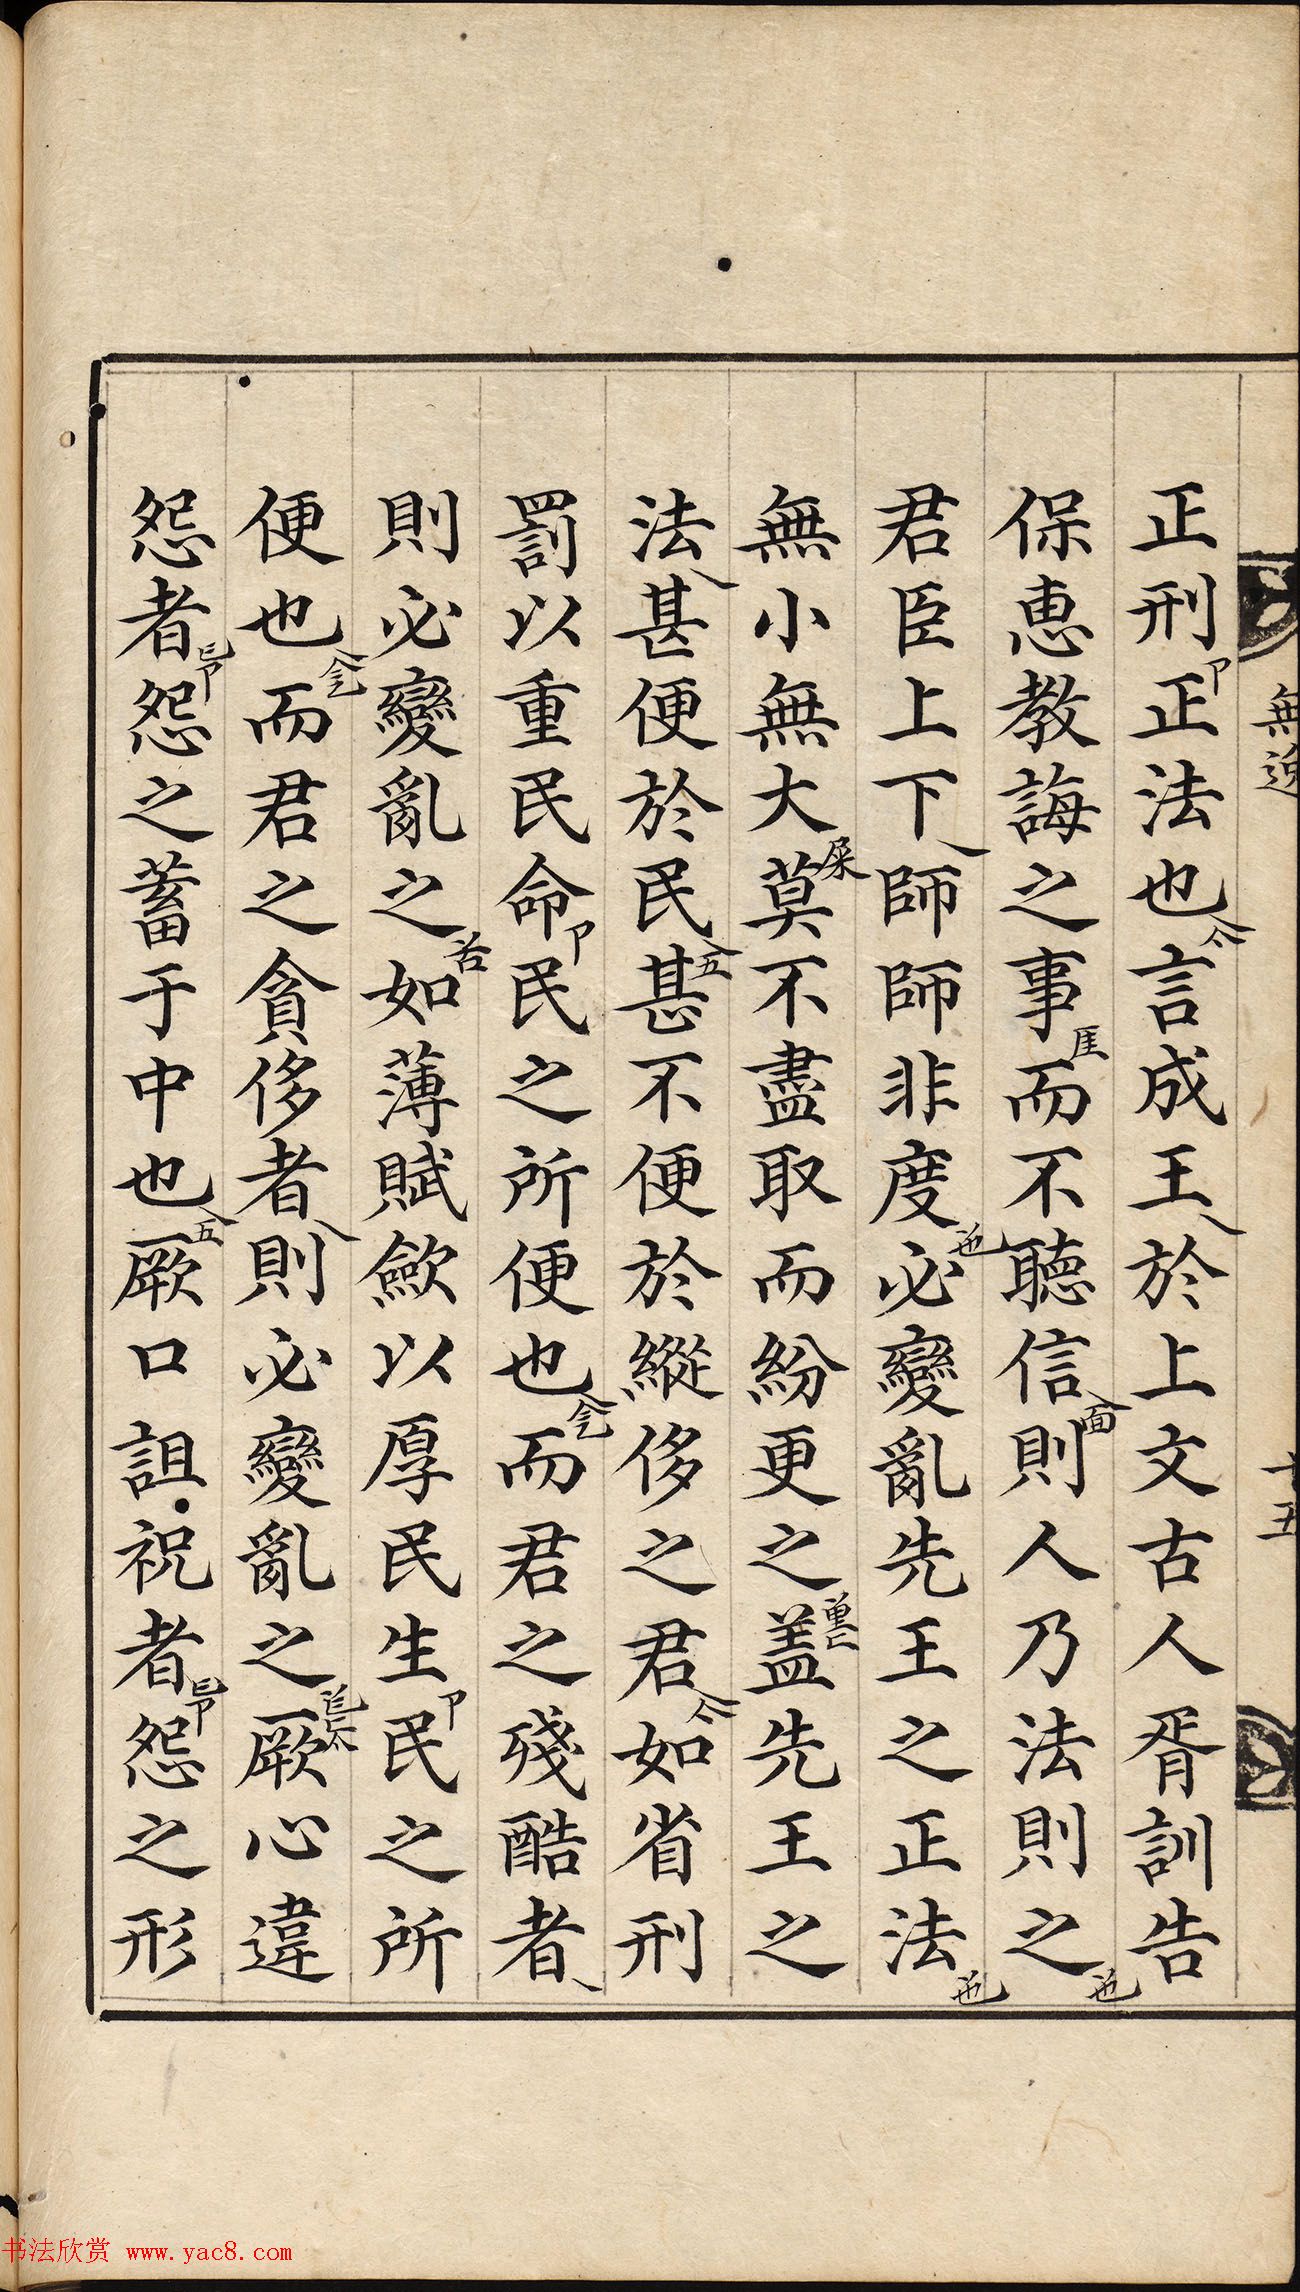 無逸
十五
正刑正法也言成王於上文古人胥訓告
保惠教誨之事而不聽信則人乃法則之
君臣上下師師非度必變亂先王之正法
無小無大莫不盡取而紛更之盖先王之
法甚便於民甚不便於縱侈之君如省刑
罰以重民命民之所便也而君之殘酷者
則必變亂之如薄賦斂以厚民生民之所
便也而君之貪侈者則必變亂之厥心違
怨者怨之蓄于中也厥口詛祝者怨之形
书法欣赏 www.yac8.com